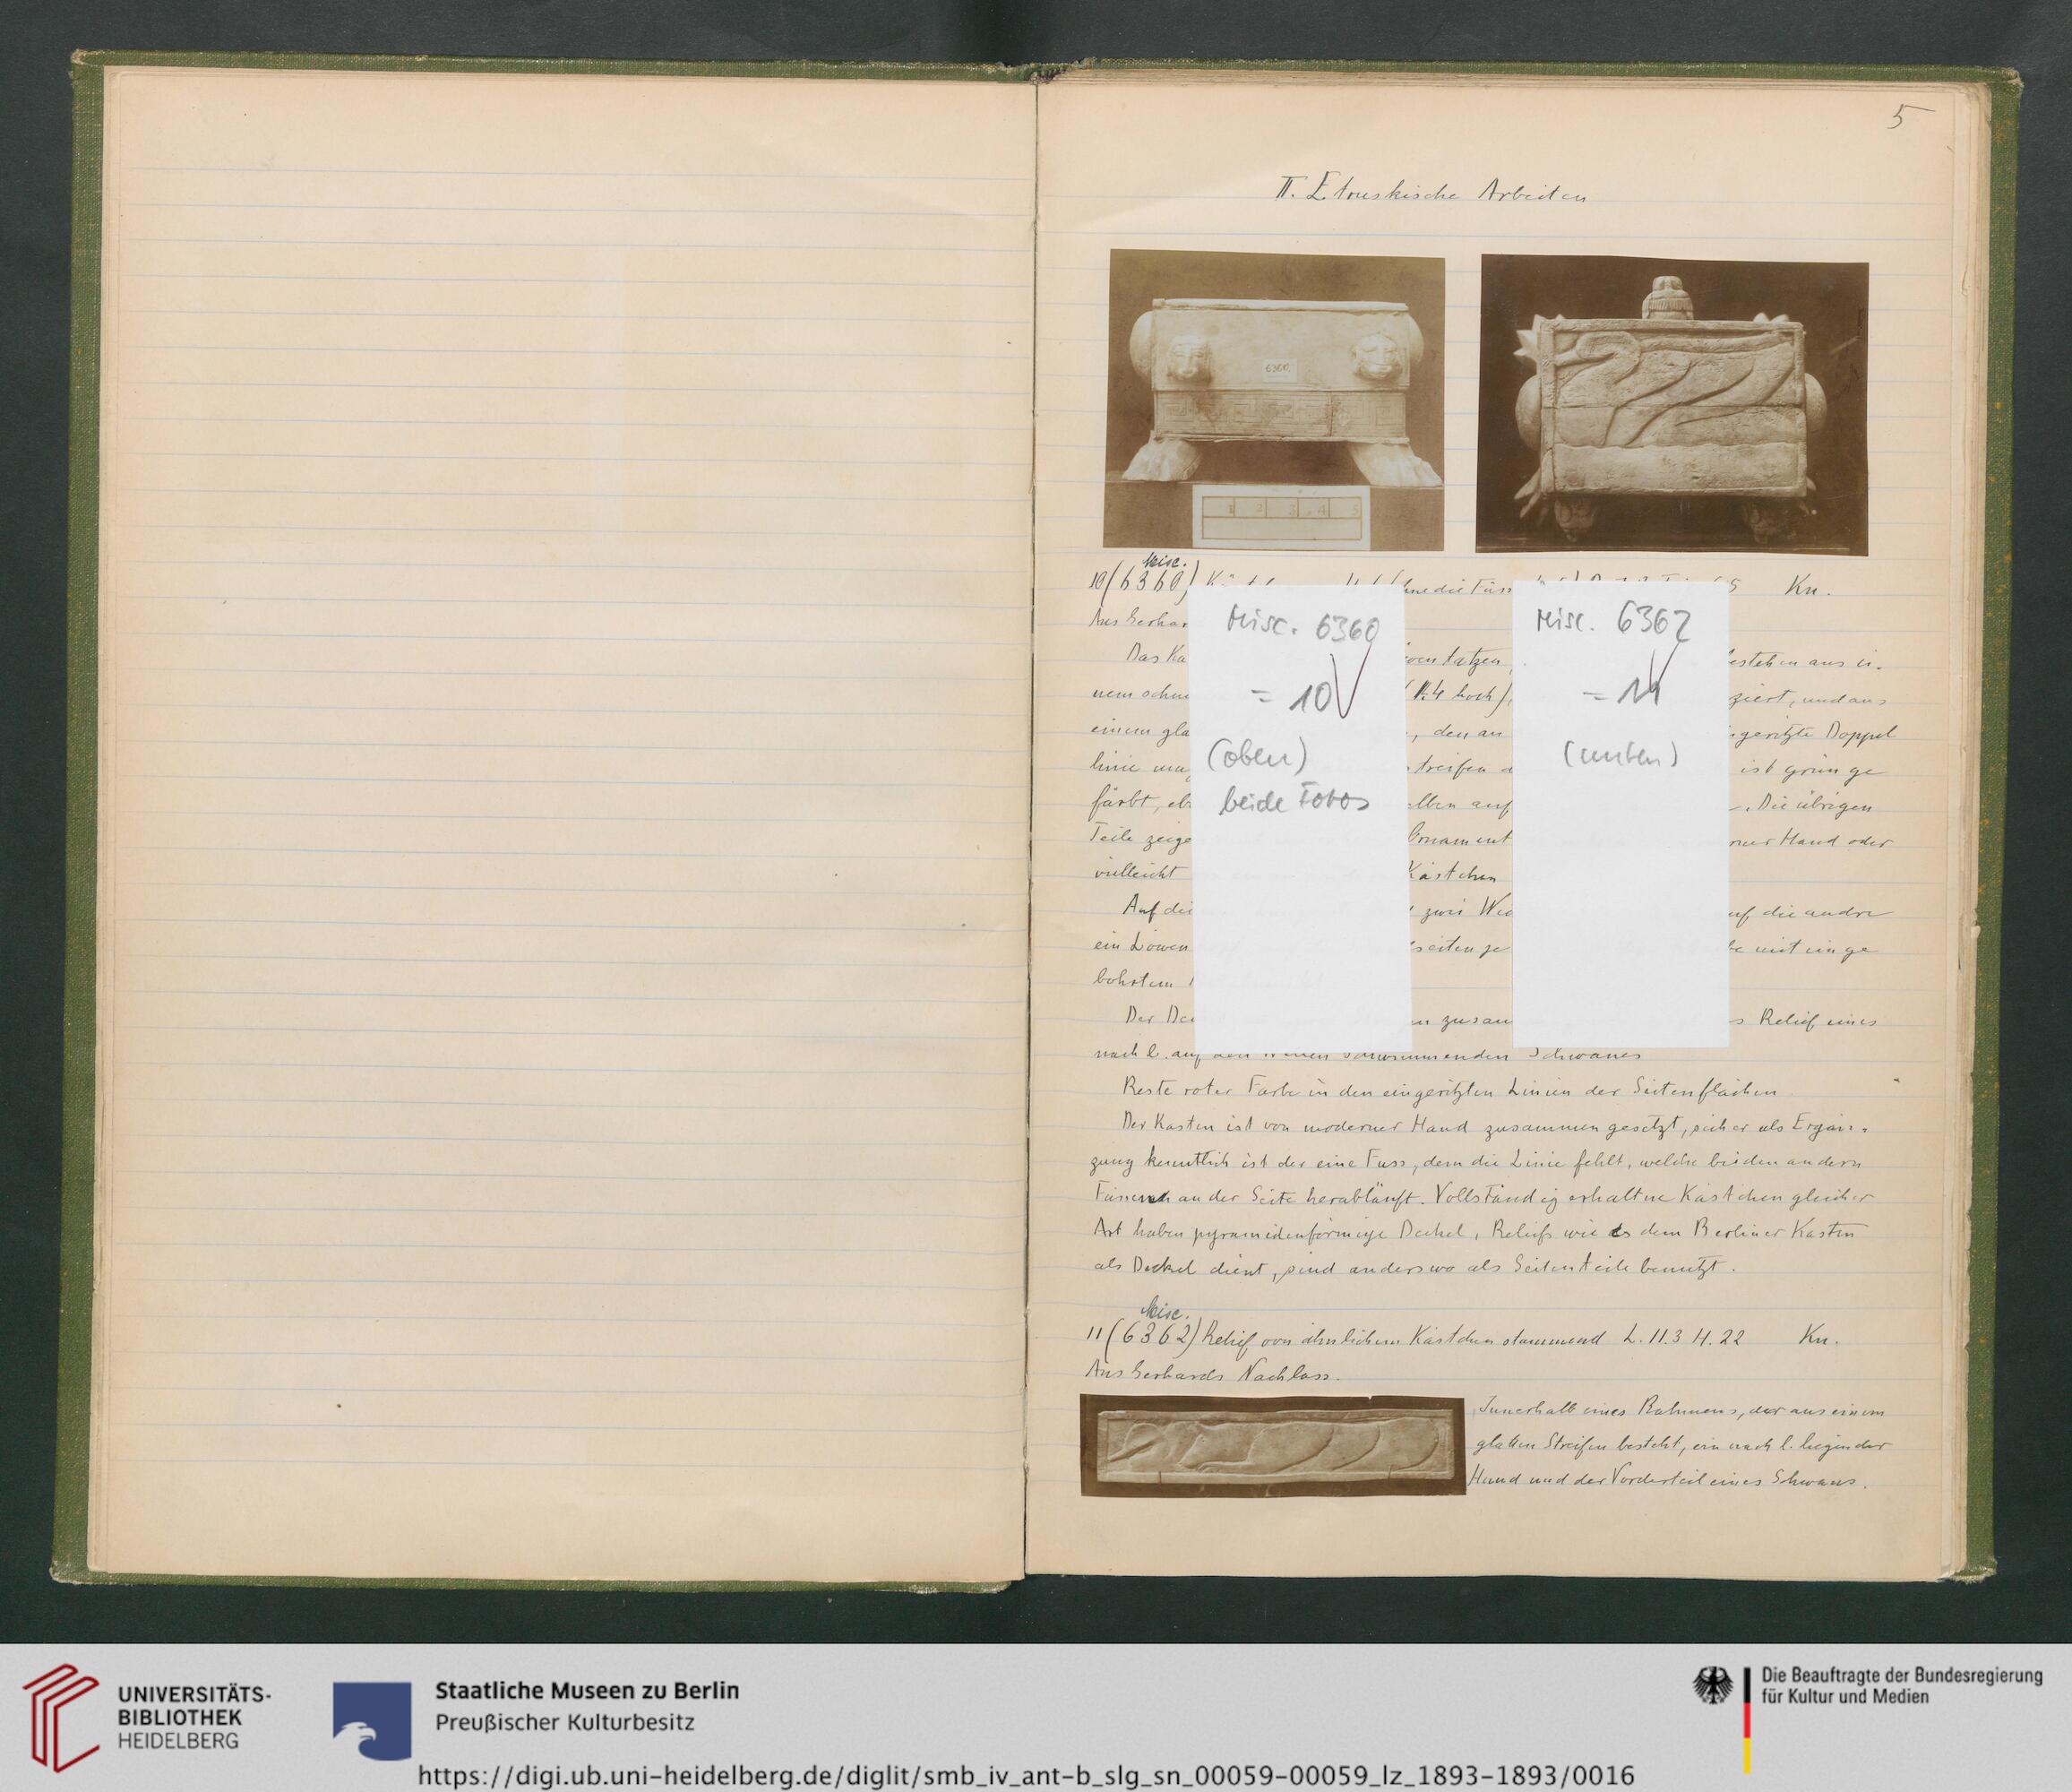 5
II. Etruskische Arbeiten
6360
1 2 3 4 5
Misc.
10 (6360) Kn.
Aus Gerhar
Misc. 6360
= 10
(oben)
beide Fotos
Misc. 6362
= 11
(unten)
Das Ka wentatzen estehen aus ei-
nem schm (1.4 hoch), ziert, und aus
einem gla , den an geritzte Doppel
linie um treifen ist grün ge
färbt, eb elben auf . Die übrigen
Teile zeige Ornament rner Hand oder
vielleicht Kästchen
Auf die zwei Wid uf die andre
ein Löwen seiten ge be mit einge
bohrtem
Der De en zusam s Relief eines
nach l. auf den Wellen schwimmenden Schwanes
Reste roter Farbe in den eingeritzten Linien der Seitenflächen
Der Kasten ist von moderner Hand zusammen gesetzt, sicher als Ergän-
zung kenntlich ist der eine Fuss, dem die Linie fehlt, welche bei den andern
Füssen an der Seite herabläuft. Vollständig erhaltne Kästchen gleicher
Art haben pyramidenförmige Deckel, Reliefs wie es dem Berliner Kasten
als Deckel dient, sind anderswo als Seitenteile benutzt.
Misc.
11 (6362) Relief von ähnlichem Kästchen stammend L. 11.3 H. 22 Kn.
Aus Gerhards Nachlass.
Innerhalb eines Rahmens, der aus einem
glatten Streifen besteht, ein nach l. liegender
Hund und der Vorderteil eines Schwans.
UNIVERSITÄTS-
BIBLIOTHEK
HEIDELBERG
Staatliche Museen zu Berlin
Preußischer Kulturbesitz
Die Beauftragte der Bundesregierung
für Kultur und Medien
https://digi.ub.uni-heidelberg.de/diglit/smb_iv_ant-b_slg_sn_00059-00059_lz_1893-1893/0016